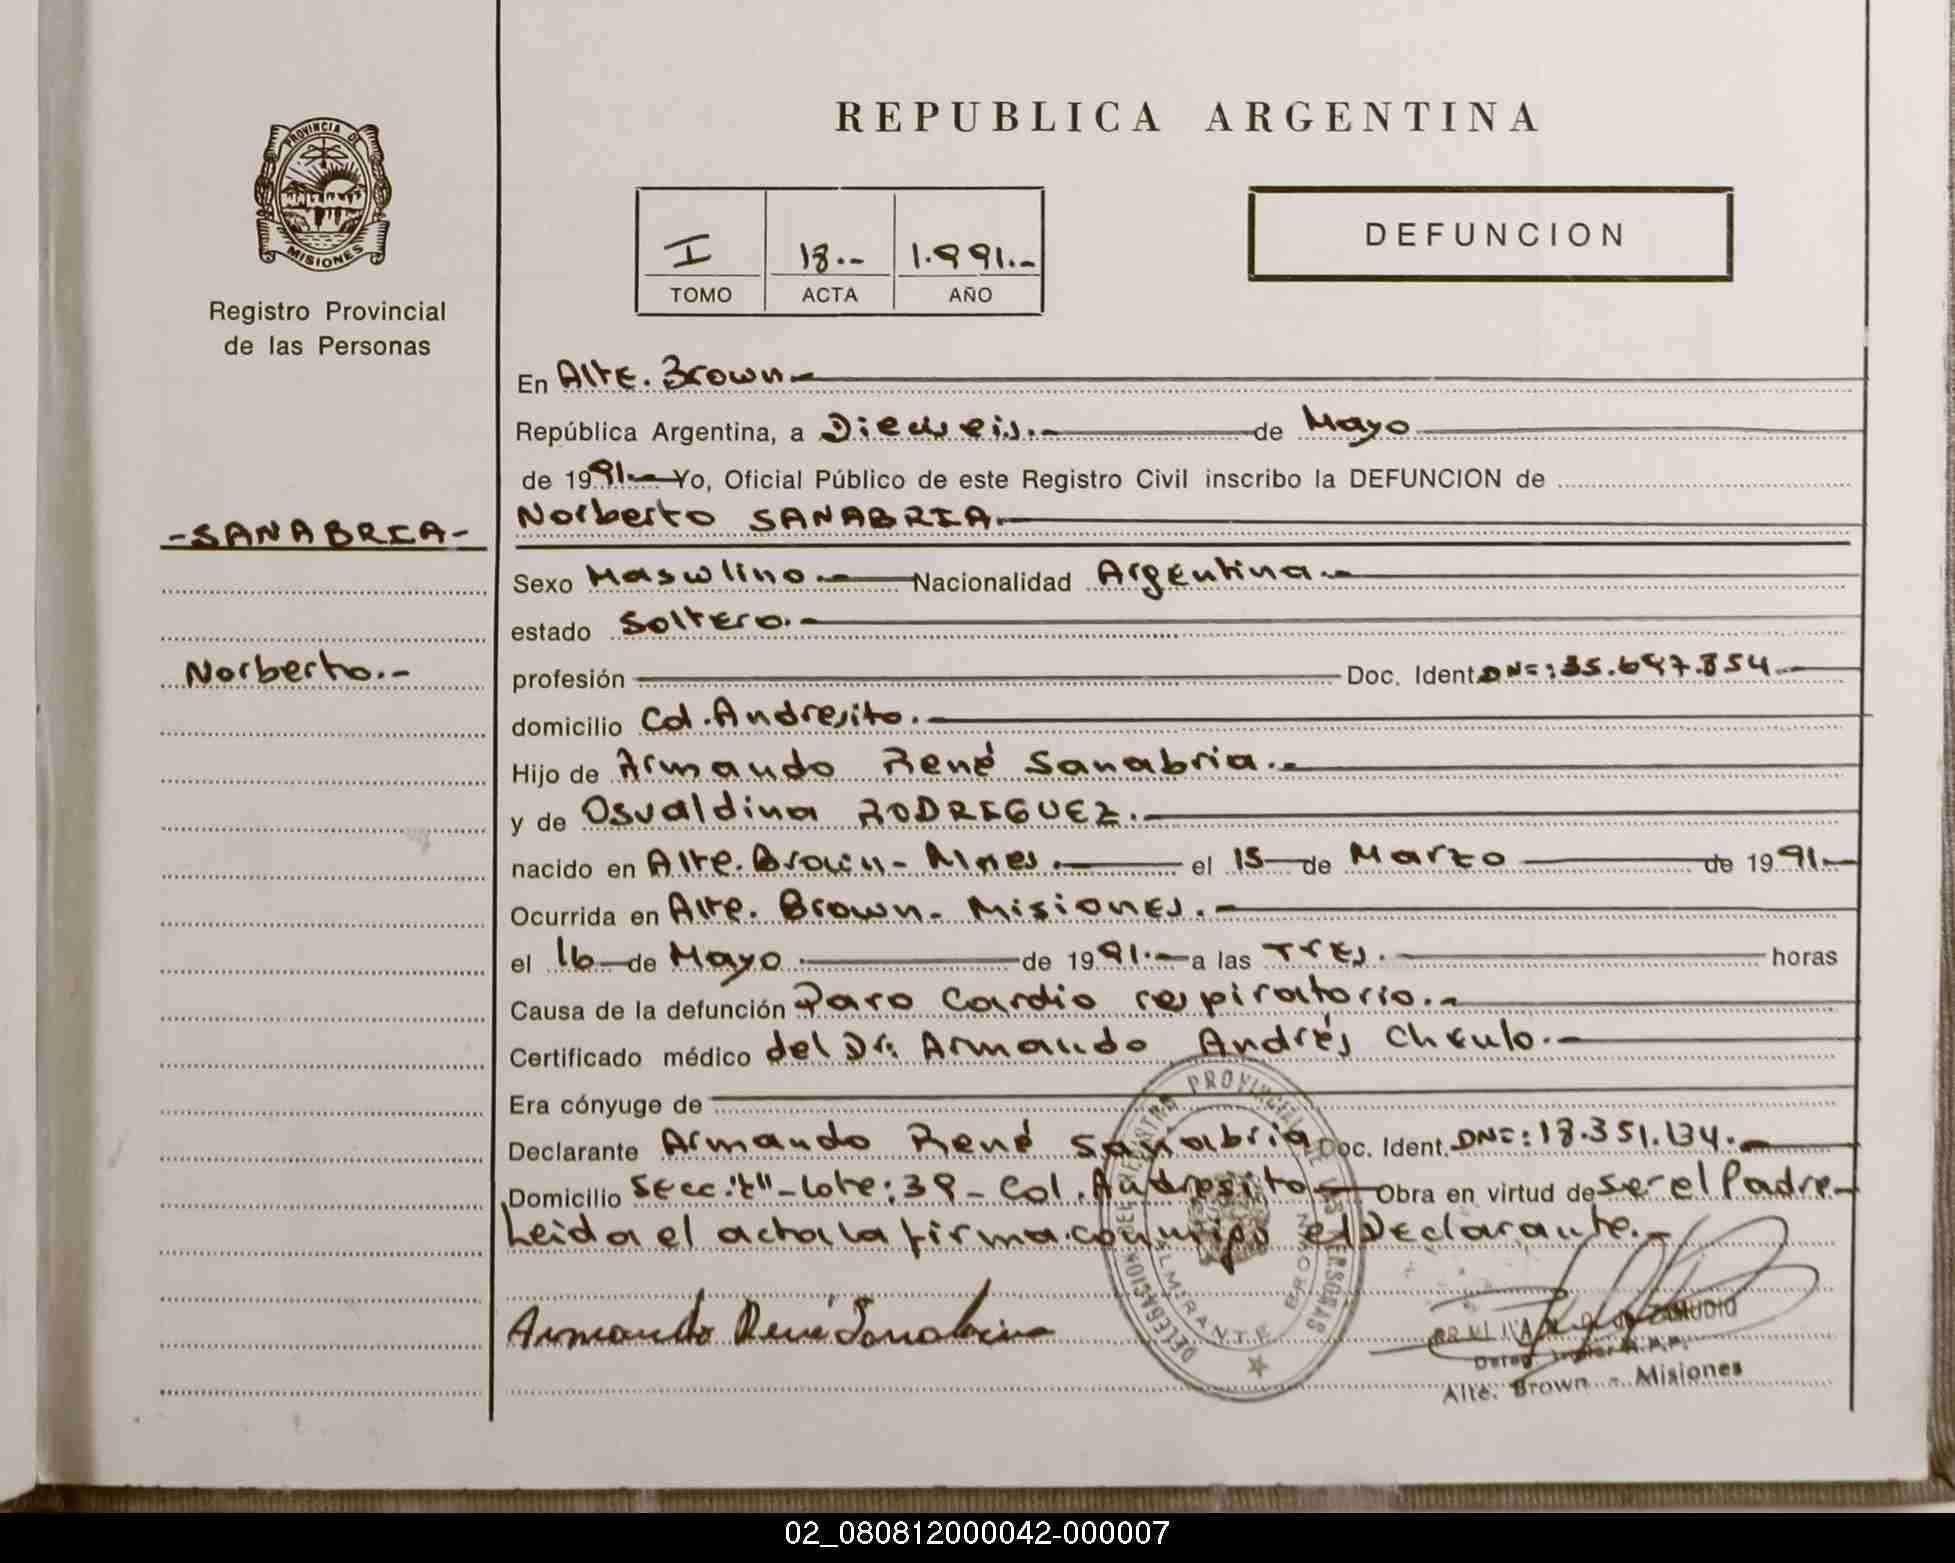 PROVINCIA DE
MISIONES
Registro Provincial
de las Personas
-SANABRIA-
Norberto.-
REPUBLICA ARGENTINA
I 18.- 1.991.-
TOMO ACTA AÑO
DEFUNCION
En Alte. Brown.-
República Argentina, a Dieciseis.- de Mayo
de 1991.- Yo, Oficial Público de este Registro Civil inscribo la DEFUNCION de
Norberto SANABRIA.-
Sexo Masculino.- Nacionalidad Argentina.-
estado Soltero.-
profesión Doc. Ident. DNI: 35.697.854.-
domicilio Col. Andresito.-
Hijo de Armando René Sanabria.-
y de Osvaldina RODRIGUEZ.-
nacido en Alte. Brown - Mnes. el 15 de Marzo de 1991.-
Ocurrida en Alte. Brown - Misiones.-
el 16 de Mayo de 1991.- a las Tres. horas
Causa de la defunción Paro Cardio respiratorio.-
Certificado médico del Dr. Armando Andrés Chiulo.-
Era cónyuge de
Declarante Armando René Sanabria Doc. Ident. DNI: 18.351.134.-
Domicilio Secc: "E" - Lote: 39 - Col. Andresito.- Obra en virtud de ser el Padre.-
Leida el acta la firma conmigo el Declarante.-
DELEGACION DEL REGISTRO PROVINCIAL DE LAS PERSONAS
ALMIRANTE BROWN
Armando René Sanabria
Alte. Brown - Misiones
02_080812000042-000007